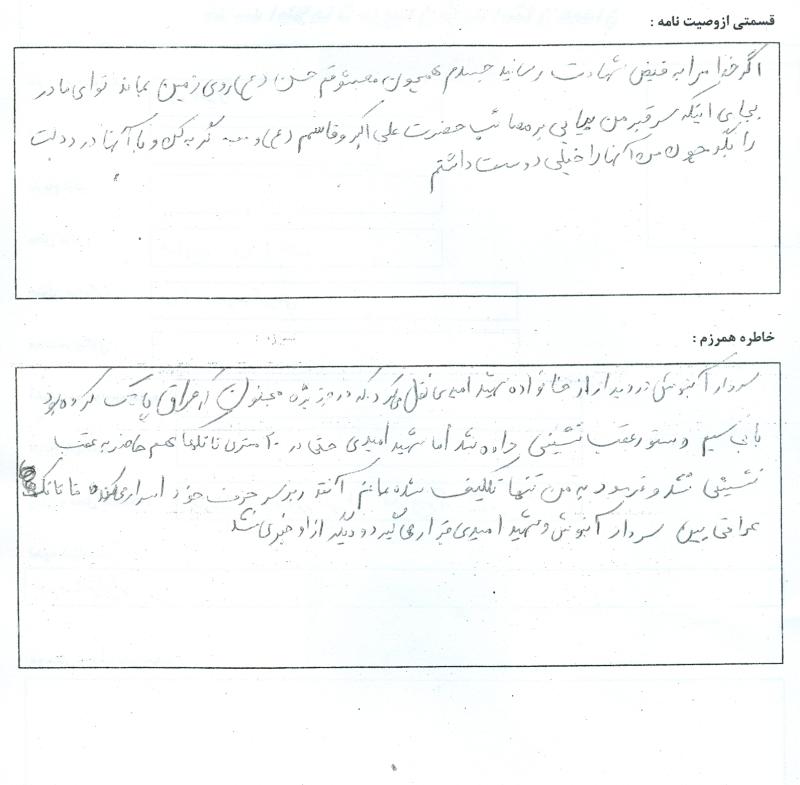 قسمتی ازوصیت نامه :
اگر خدا مرا به فیض شهادت رسانید جسدم همچون معشوقم حسین (ع) روی زمین بماند توای مادر
بجای اینکه سر قبر من بیایی بر مصائب حضرت علی اکبر و قاسم (ع) و ... گریه کن و با آنها درد دلت
را بگو چون من آنها را خیلی دوست داشتم
خاطره همرزم :
سردار آکبوش در دیدار از خانواده شهید امیدی نقل میکرد که در جزیره مجنون که عراق پاتک کرده بود
با بی سیم دستور عقب نشینی داده شد اما شهید امیدی حتی در ۲۰ متری تانکها هم حاضر به عقب
نشینی نشد و فرمود به من تنها تکلیف شده بمانم آنقدر بر سر حرف خود اصرار میکند تا تانک
عراقی بین سردار آکبوش و شهید امیدی قرار می گیرد و دیگر از او خبری نشد